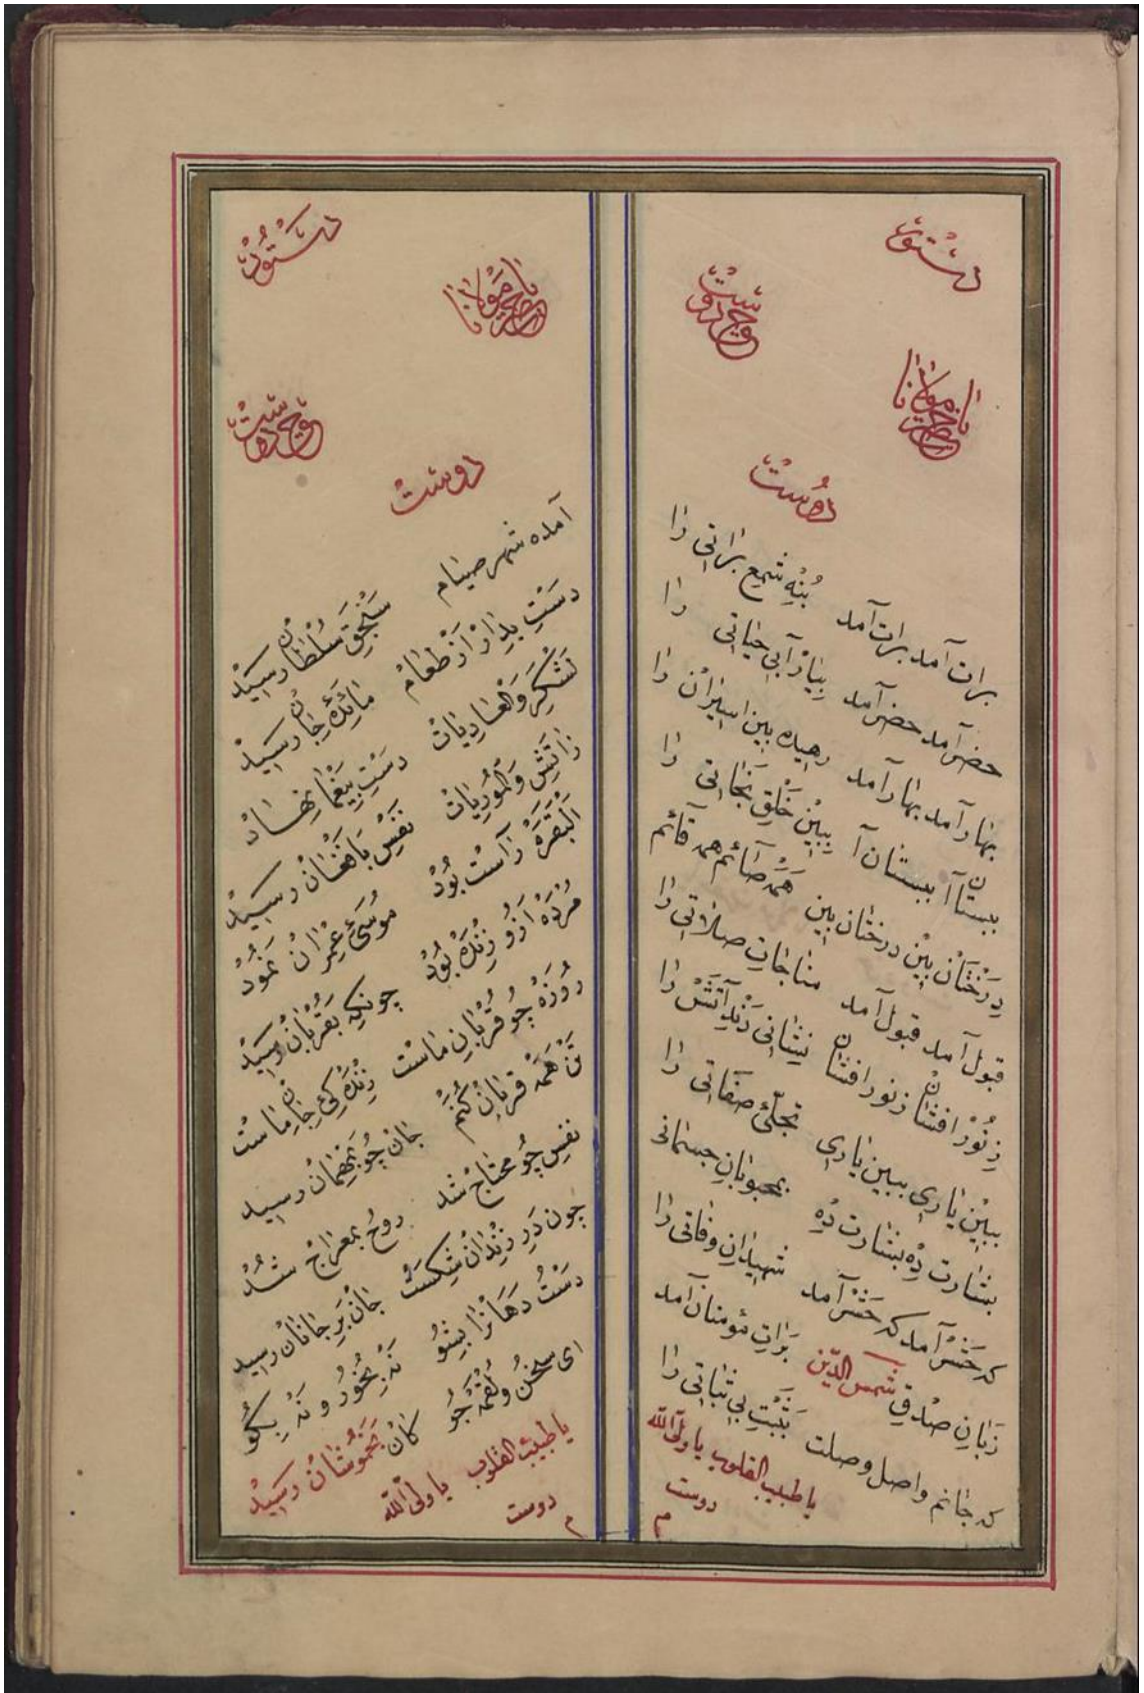 دستور
یا حضرت مولانا
حق دوست
دوست
برات آمد برات آمد بنه شمع براتی را
خضر آمد خضر آمد بیار آبی حیاتی را
بهار آمد بهار آمد رهیده بین اسیران را
ببستان آ ببستان آ ببین خلق نجاتی را
درختان بین درختان بین همه صائم همه قائم
قبول آمد قبول آمد مناجات صلاتی را
ز نور افشان ز نور افشان نشانی دند آتش را
ببین یاری ببین یاری تجلئ صفاتی را
بشارت ده بشارت ده بمحبوبان جسمانی
که حشر آمد که حشر آمد شهیدان وفاتی را
زبان صدق شمس الدین برات مؤمنان آمد
که جانم واصل وصلت بثبت بی ثباتی را
یا طبیب القلوب یا ولی الله
دوست
م
دستور
یا حضرت مولانا
حق دوست
دوست
آمده شهر صیام سنجق سلطان رسید
دست بدار از طعام مائدۀ جان رسید
لشکر والعادیات دست بیغما نهاد
زاتش والموریات نفس بافغان رسید
البقره راست بود موسئ عمران نمود
مرده ازو زنده بود چونکه بقربان رسید
روزه چو قربان ماست زندکئ جان ماست
تن همه قربان کنم جان چو بمهمان رسید
نفس چو محتاج شد روح بمعراج شد
چون در زندان شکست جان بر جانان رسید
دست دهانرا بشو نه بخور و نه بکو
ای سخن و لقمه جو کان بخموشان رسید
یا طبیب القلوب یا ولی الله
دوست
م